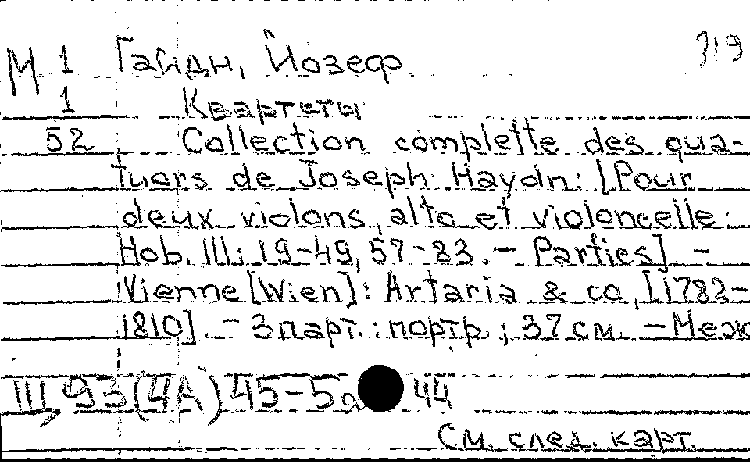 М 1 Гайдн, Йозеф. 319
1 Квартеты
52 Collection complette des qua-
tuors de Joseph Haydn: [Pour
deux violons, alto et violoncelle:
Hob. III: 19-49, 57-83. - Parties]. -
Vienne [Wien]: Artaria & co, [1782-
1810]. - 3 парт.: портр.; 37 см. - Меж
III, 93(4А)45-5 44
См. след. карт.